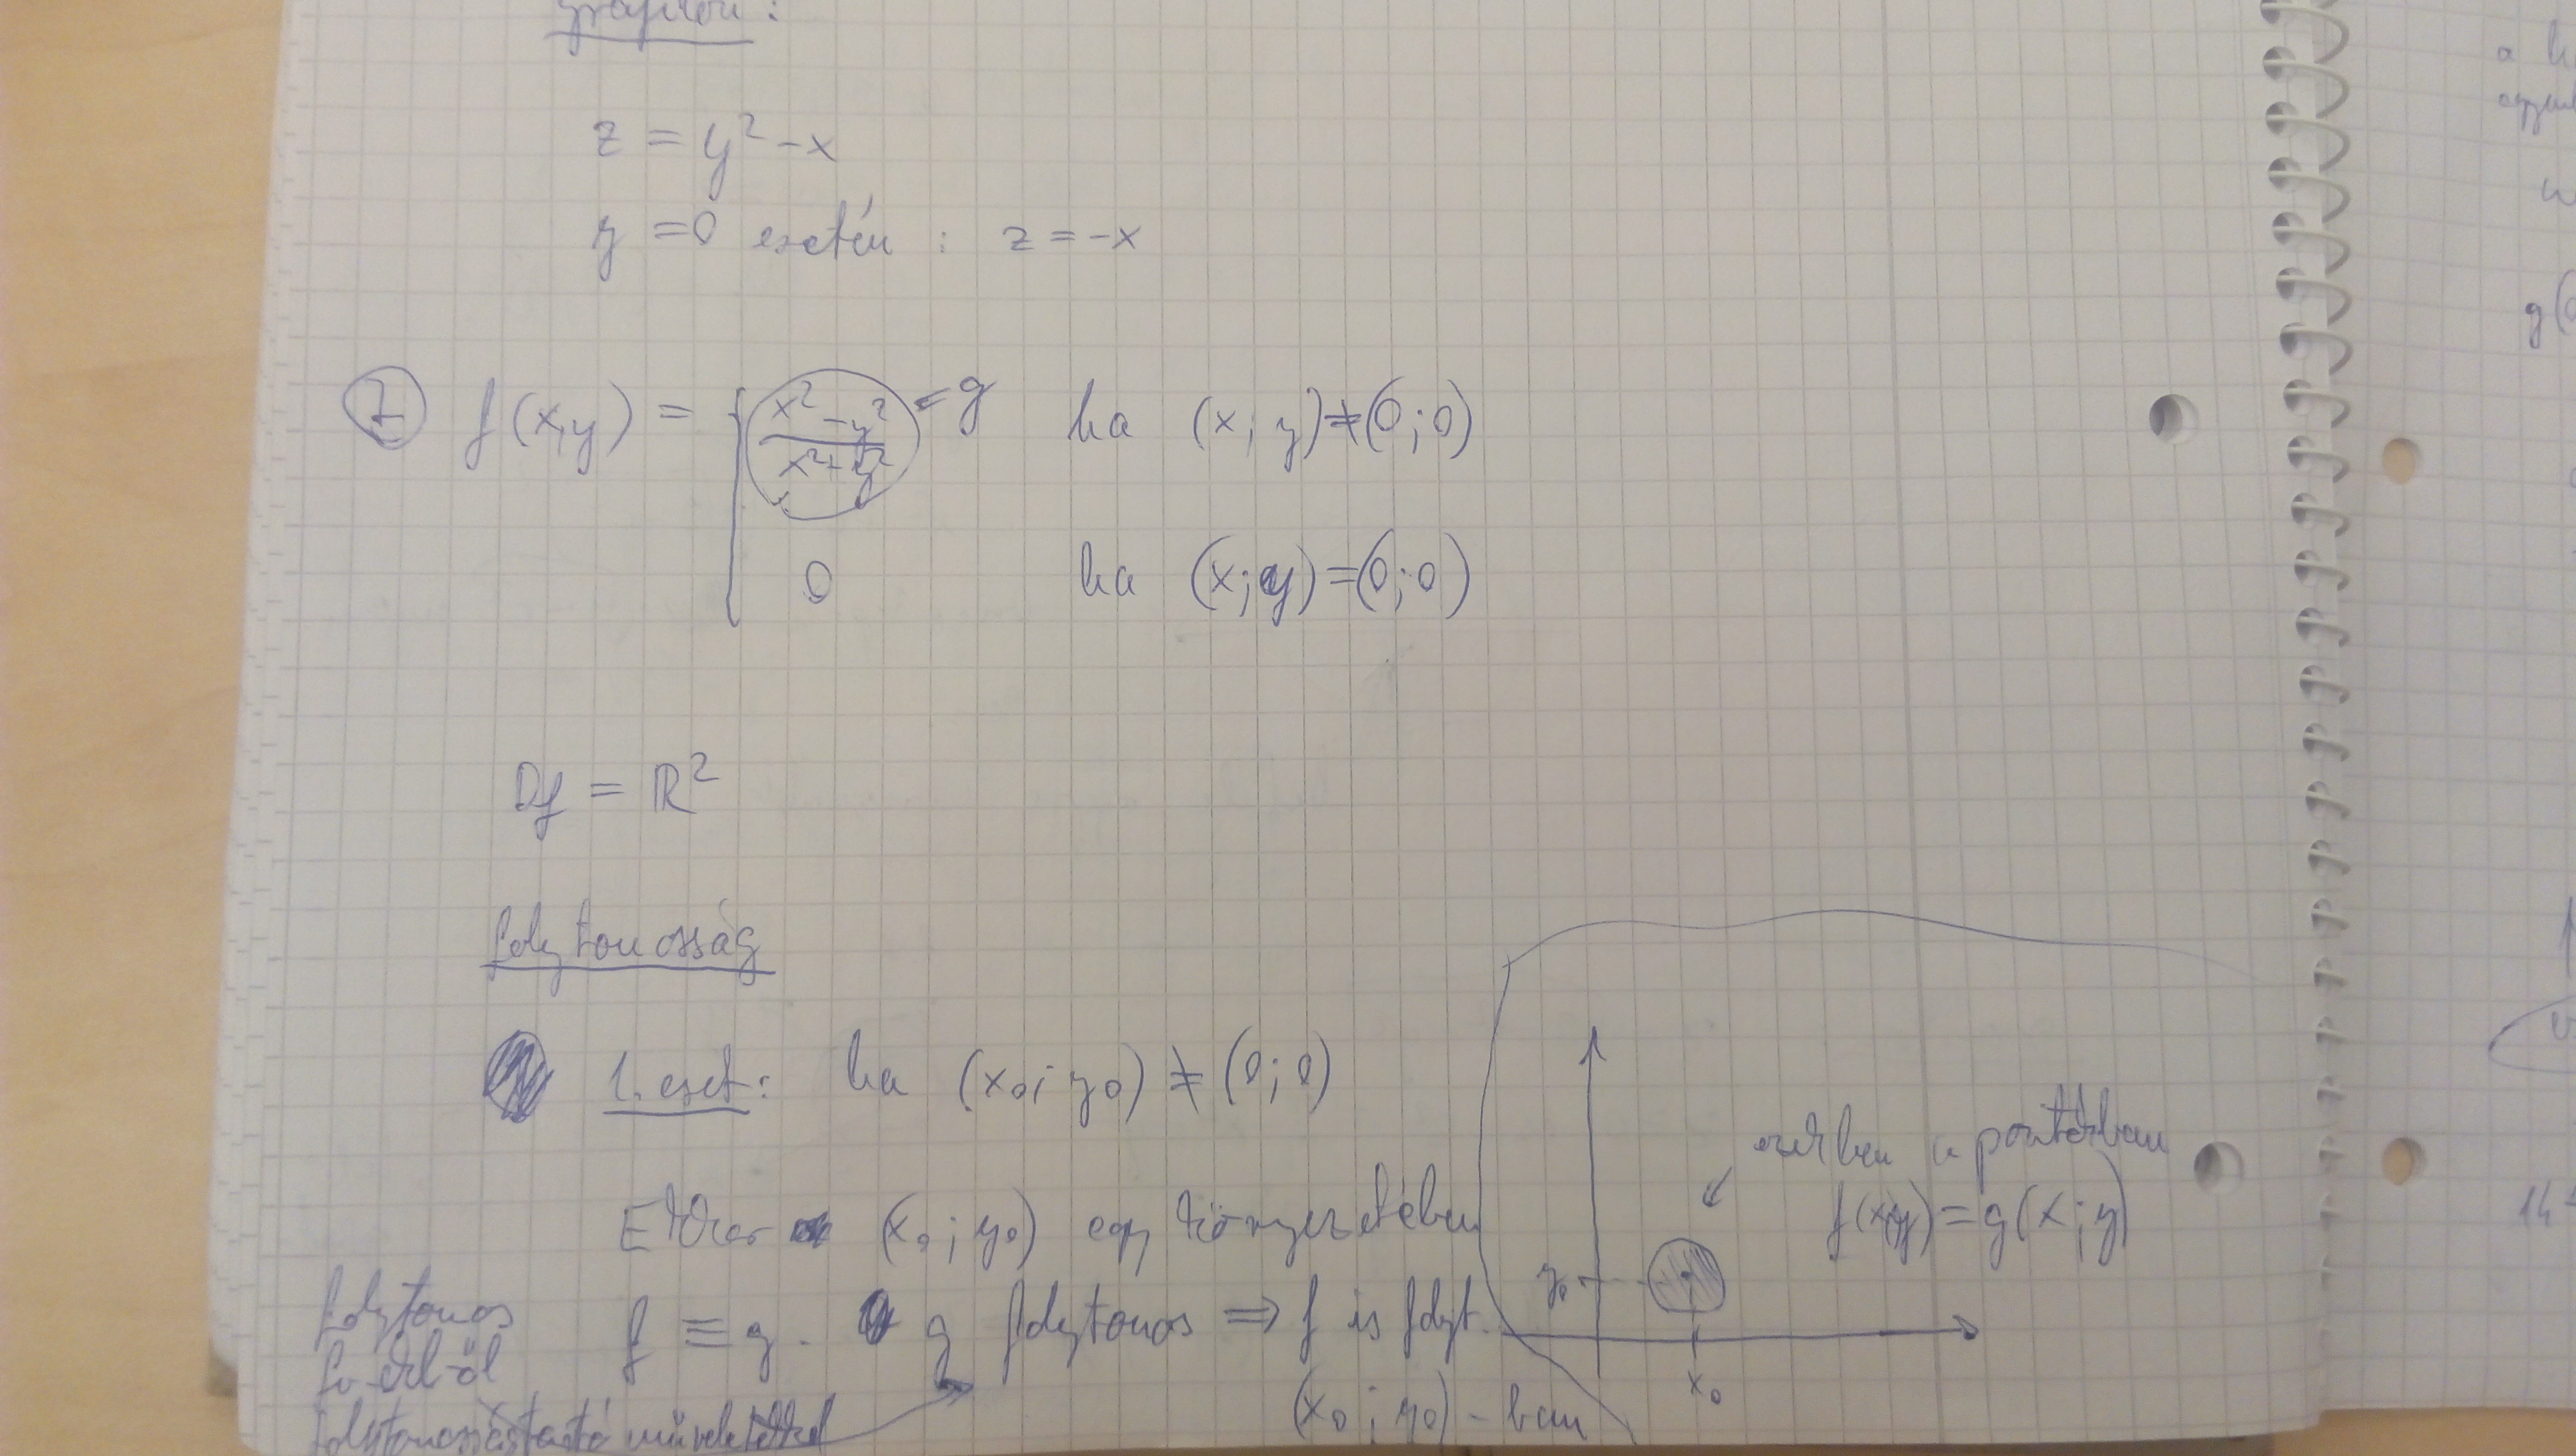 z = y² - x
y = 0 esetén : z = -x
f(x,y) = { x² - y² / x² + y² = g ha (x; y) ≠ (0; 0)
0 ha (x; y) = (0; 0)
Df = ℝ²
folytonosság
1. eset: ha (x₀; y₀) ≠ (0; 0)
Ekkor (x₀; y₀) egy környezetében
f ≡ g. g folytonos ⇒ f is folyt.
(x₀; y₀) - ban
folytonos
fv-ekből
folytonosságtartó műveletekkel
ezekben a pontokban
f(x;y) = g(x; y)
y₀
x₀